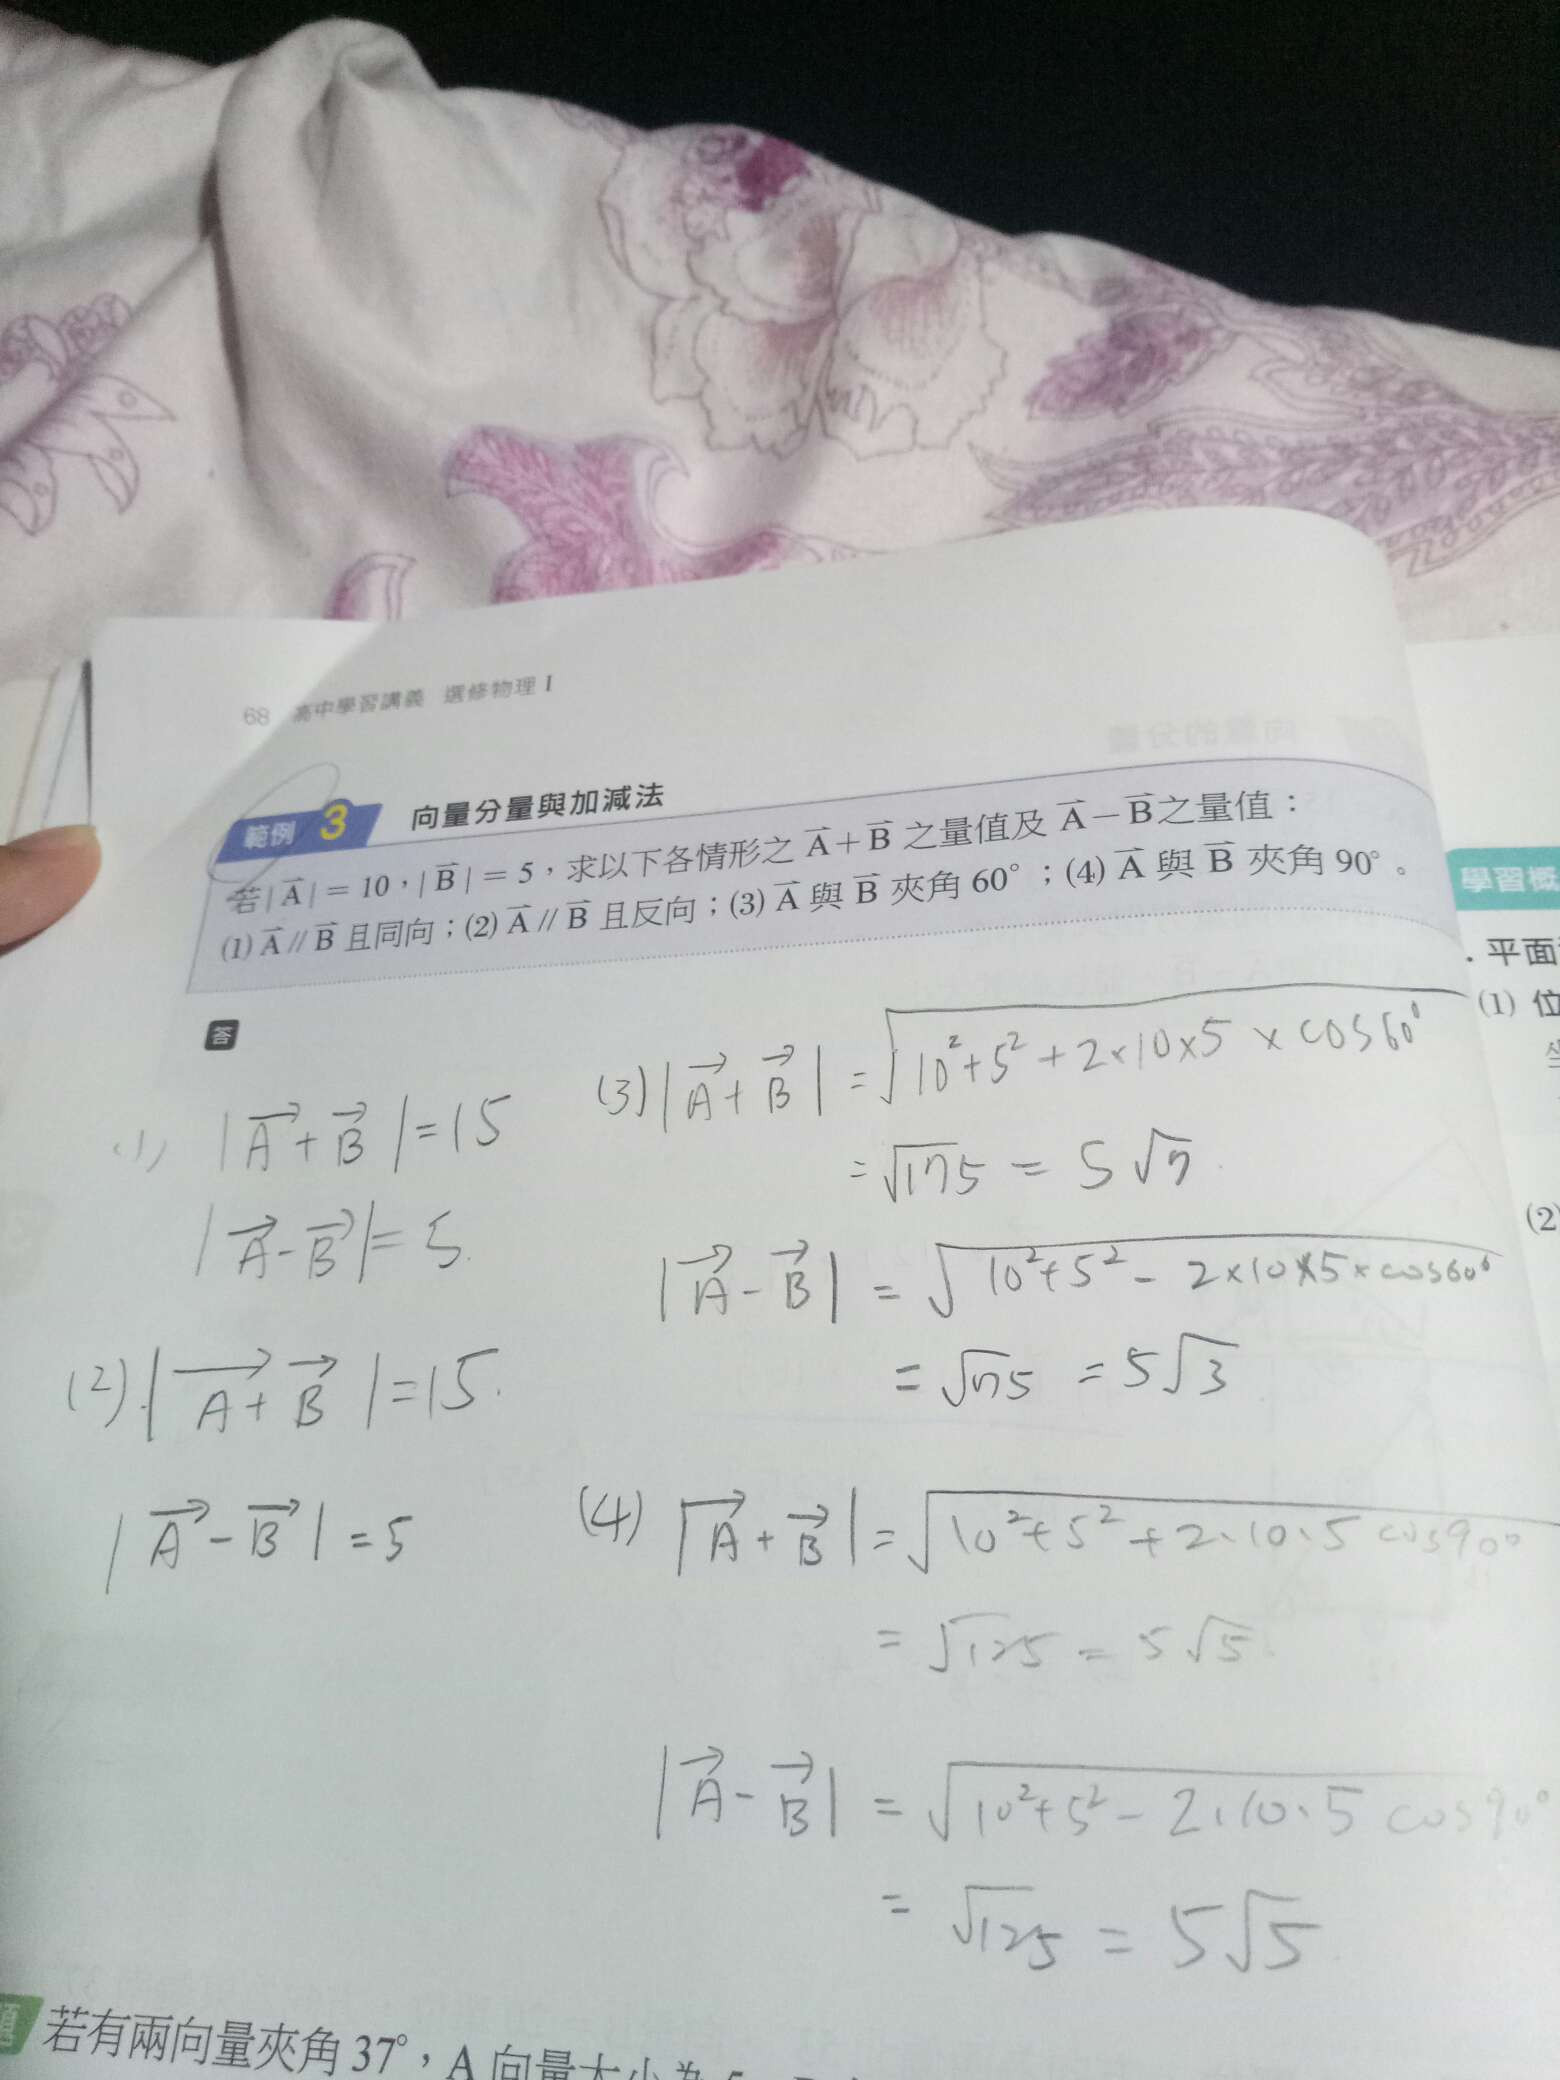 68 高中學習講義 選修物理 I
範例 3 向量分量與加減法
若|A⃗|=10，|B⃗|=5，求以下各情形之 A⃗+B⃗ 之量值及 A⃗－B⃗之量值：
(1) A⃗∥B⃗ 且同向；(2) A⃗∥B⃗ 且反向；(3) A⃗ 與 B⃗ 夾角 60°；(4) A⃗ 與 B⃗ 夾角 90°。
答
(1) |A⃗+B⃗|=15
|A⃗-B⃗|=5.
(2).|A⃗+B⃗|=15.
|A⃗-B⃗|=5
(3)|A⃗+B⃗|=√(10²+5²+2×10×5×cos60°)
=√175=5√7.
|A⃗-B⃗|=√(10²+5²-2×10×5×cos60°)
=√75=5√3
(4) |A⃗+B⃗|=√(10²+5²+2·10·5 cos90°)
=√125=5√5.
|A⃗-B⃗|=√(10²+5²-2·10·5 cos90°)
=√125=5√5.
若有兩向量夾角 37°，A 向量大小為
學習概
. 平面
(1) 位
(2)